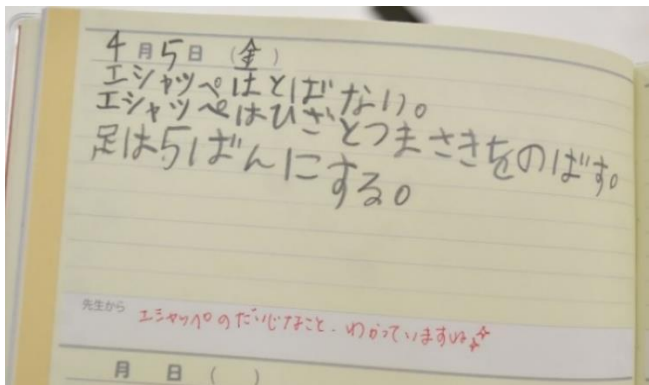 4月5日(金)
エシャッペはとばない。
エシャッペはひざとつまさきをのばす。
足は5ばんにする。
先生から エシャッペのだいじなこと、わかっていますね
月 日 ( )